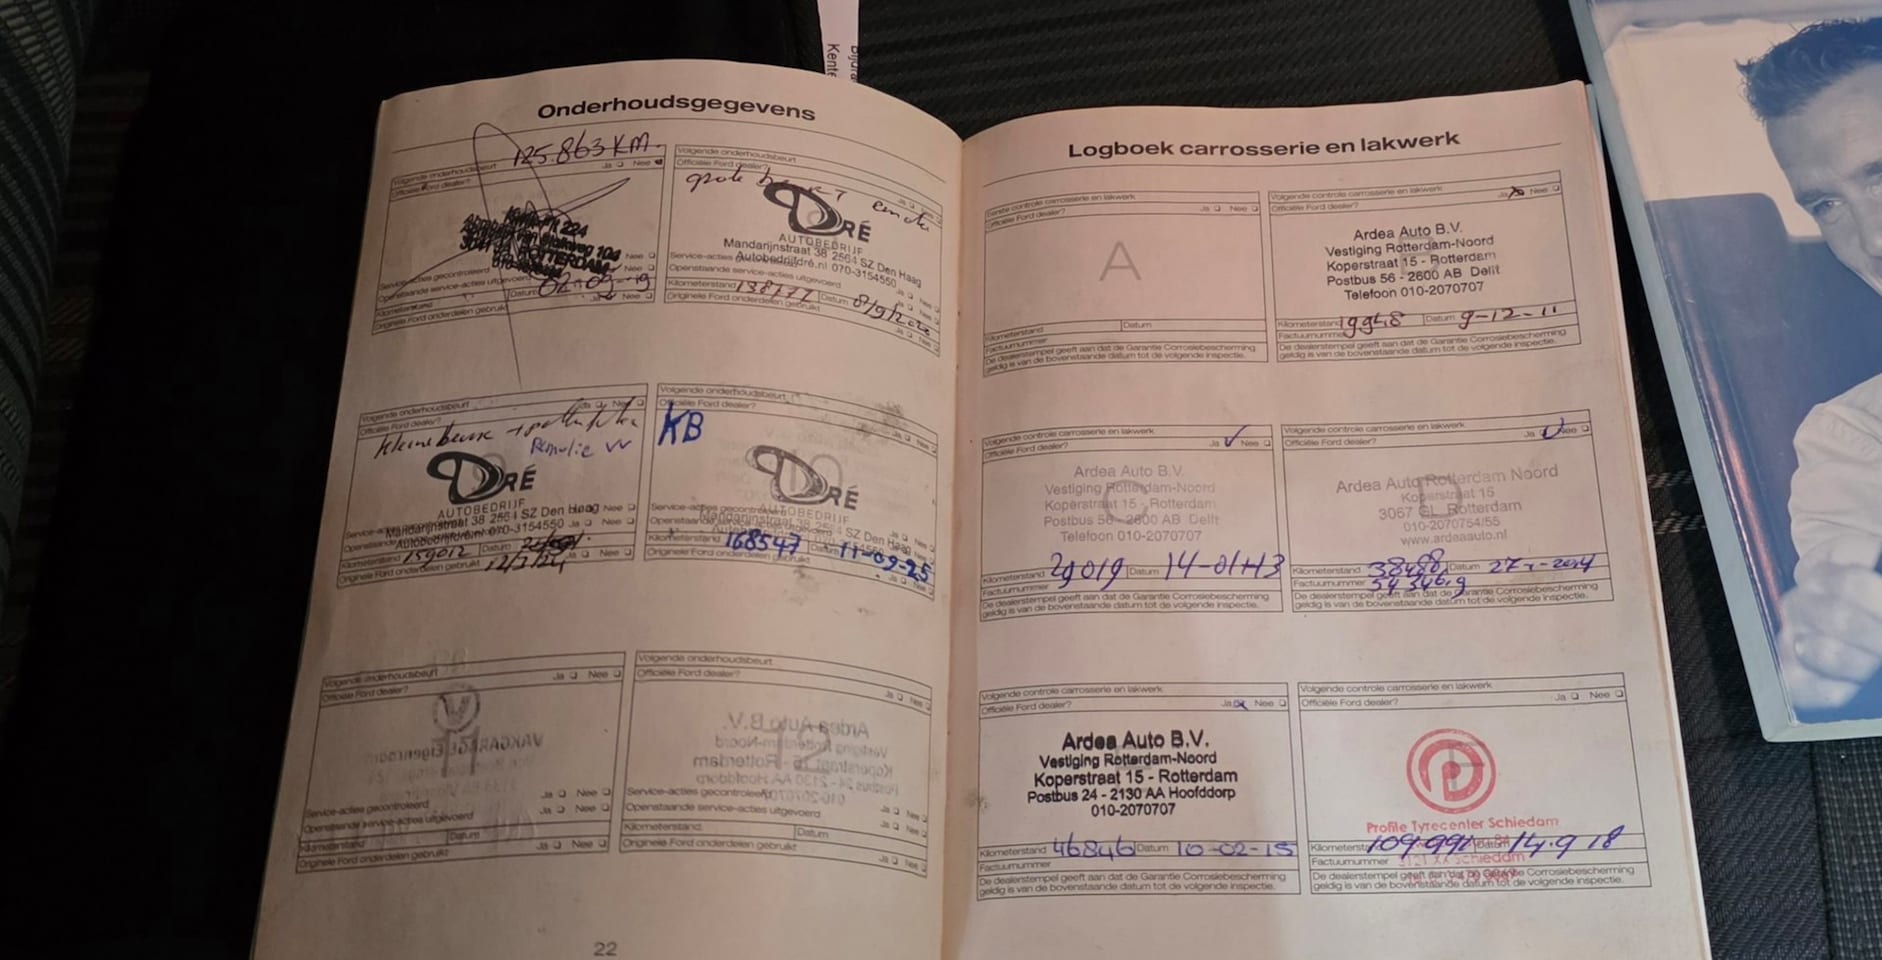 Kente
Onderhoudsgegevens
125.863 KM.
Volgende onderhoudsbeurt
Officiële Ford dealer? Ja Nee
Service-acties gecontroleerd Nee
Openstaande service-acties uitgevoerd Nee
Kilometerstand Datum 02-09-19
Originele Ford onderdelen gebruikt Nee
Volgende onderhoudsbeurt
Officiële Ford dealer?
grote beurt
DRÉ
AUTOBEDRIJF
Mandarijnstraat 38 2564 SZ Den Haag
Autobedrijfdré.nl 070-3154550
Openstaande service-acties uitgevoerd
Kilometerstand 138177 Datum 8/9/2020
Originele Ford onderdelen gebruikt Ja Nee
Volgende onderhoudsbeurt
Officiële Ford dealer?
kleine beurt
Remolie VV
DRÉ
AUTOBEDRIJF
Mandarijnstraat 38 2564 SZ Den Haag
Autobedrijfdré.nl 070-3154550
Kilometerstand 159012 Datum
Originele Ford onderdelen gebruikt 12/3/24 Ja Nee
Volgende onderhoudsbeurt
Officiële Ford dealer?
KB
DRÉ
AUTOBEDRIJF
Mandarijnstraat 38 2564 SZ Den Haag
Kilometerstand 168547 Datum 11-09-25
Originele Ford onderdelen gebruikt Ja Nee
Volgende onderhoudsbeurt
Officiële Ford dealer? Ja Nee
11
Service-acties gecontroleerd Ja Nee
Openstaande service-acties uitgevoerd Ja Nee
Kilometerstand Datum
Originele Ford onderdelen gebruikt Ja Nee
Volgende onderhoudsbeurt
Officiële Ford dealer? Ja Nee
12
Service-acties gecontroleerd Ja Nee
Openstaande service-acties uitgevoerd Ja Nee
Kilometerstand Datum
Originele Ford onderdelen gebruikt Ja Nee
22
Logboek carrosserie en lakwerk
Eerste controle carrosserie en lakwerk
Officiële Ford dealer? Ja Nee
A
Kilometerstand Datum
Factuurnummer
De dealerstempel geeft aan dat de Garantie Corrosiebescherming
geldig is van de bovenstaande datum tot de volgende inspectie.
Volgende controle carrosserie en lakwerk
Officiële Ford dealer? Ja Nee
Ardea Auto B.V.
Vestiging Rotterdam-Noord
Koperstraat 15 - Rotterdam
Postbus 56 - 2600 AB Delft
Telefoon 010-2070707
Kilometerstand 19948 Datum 9-12-11
Factuurnummer
De dealerstempel geeft aan dat de Garantie Corrosiebescherming
geldig is van de bovenstaande datum tot de volgende inspectie.
Volgende controle carrosserie en lakwerk
Officiële Ford dealer? Ja Nee
Ardea Auto B.V.
Vestiging Rotterdam-Noord
Koperstraat 15 - Rotterdam
Postbus 56 - 2600 AB Delft
Telefoon 010-2070707
C
Kilometerstand 29019 Datum 14-01-13
Factuurnummer
De dealerstempel geeft aan dat de Garantie Corrosiebescherming
geldig is van de bovenstaande datum tot de volgende inspectie.
Volgende controle carrosserie en lakwerk
Officiële Ford dealer? Ja Nee
Ardea Auto Rotterdam Noord
Koperstraat 15
3067 GL Rotterdam
010-2070754/55
www.ardeaauto.nl
D
Kilometerstand 38488 Datum 27-1-2014
Factuurnummer
De dealerstempel geeft aan dat de Garantie Corrosiebescherming
geldig is van de bovenstaande datum tot de volgende inspectie.
Volgende controle carrosserie en lakwerk
Officiële Ford dealer? Ja Nee
Ardea Auto B.V.
Vestiging Rotterdam-Noord
Koperstraat 15 - Rotterdam
Postbus 24 - 2130 AA Hoofddorp
010-2070707
Kilometerstand 46846 Datum 10-02-15
Factuurnummer
De dealerstempel geeft aan dat de Garantie Corrosiebescherming
geldig is van de bovenstaande datum tot de volgende inspectie.
Volgende controle carrosserie en lakwerk
Officiële Ford dealer? Ja Nee
Profile Tyrecenter Schiedam
Kilometerstand 109.991 Datum 14.9 18
Factuurnummer Schiedam
De dealerstempel geeft aan dat de Garantie Corrosiebescherming
geldig is van de bovenstaande datum tot de volgende inspectie.